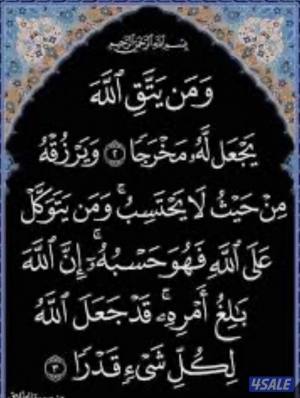 بِسْمِ اللَّهِ الرَّحْمَٰنِ الرَّحِيمِ
وَمَن يَتَّقِ ٱللَّهَ
يَجْعَل لَّهُۥ مَخْرَجًا ٢ وَيَرْزُقْهُ
مِنْ حَيْثُ لَا يَحْتَسِبُ ۚ وَمَن يَتَوَكَّلْ
عَلَى ٱللَّهِ فَهُوَ حَسْبُهُۥٓ ۚ إِنَّ ٱللَّهَ
بَٰلِغُ أَمْرِهِۦ ۚ قَدْ جَعَلَ ٱللَّهُ
لِكُلِّ شَىْءٍ قَدْرًا ٣
4SALE